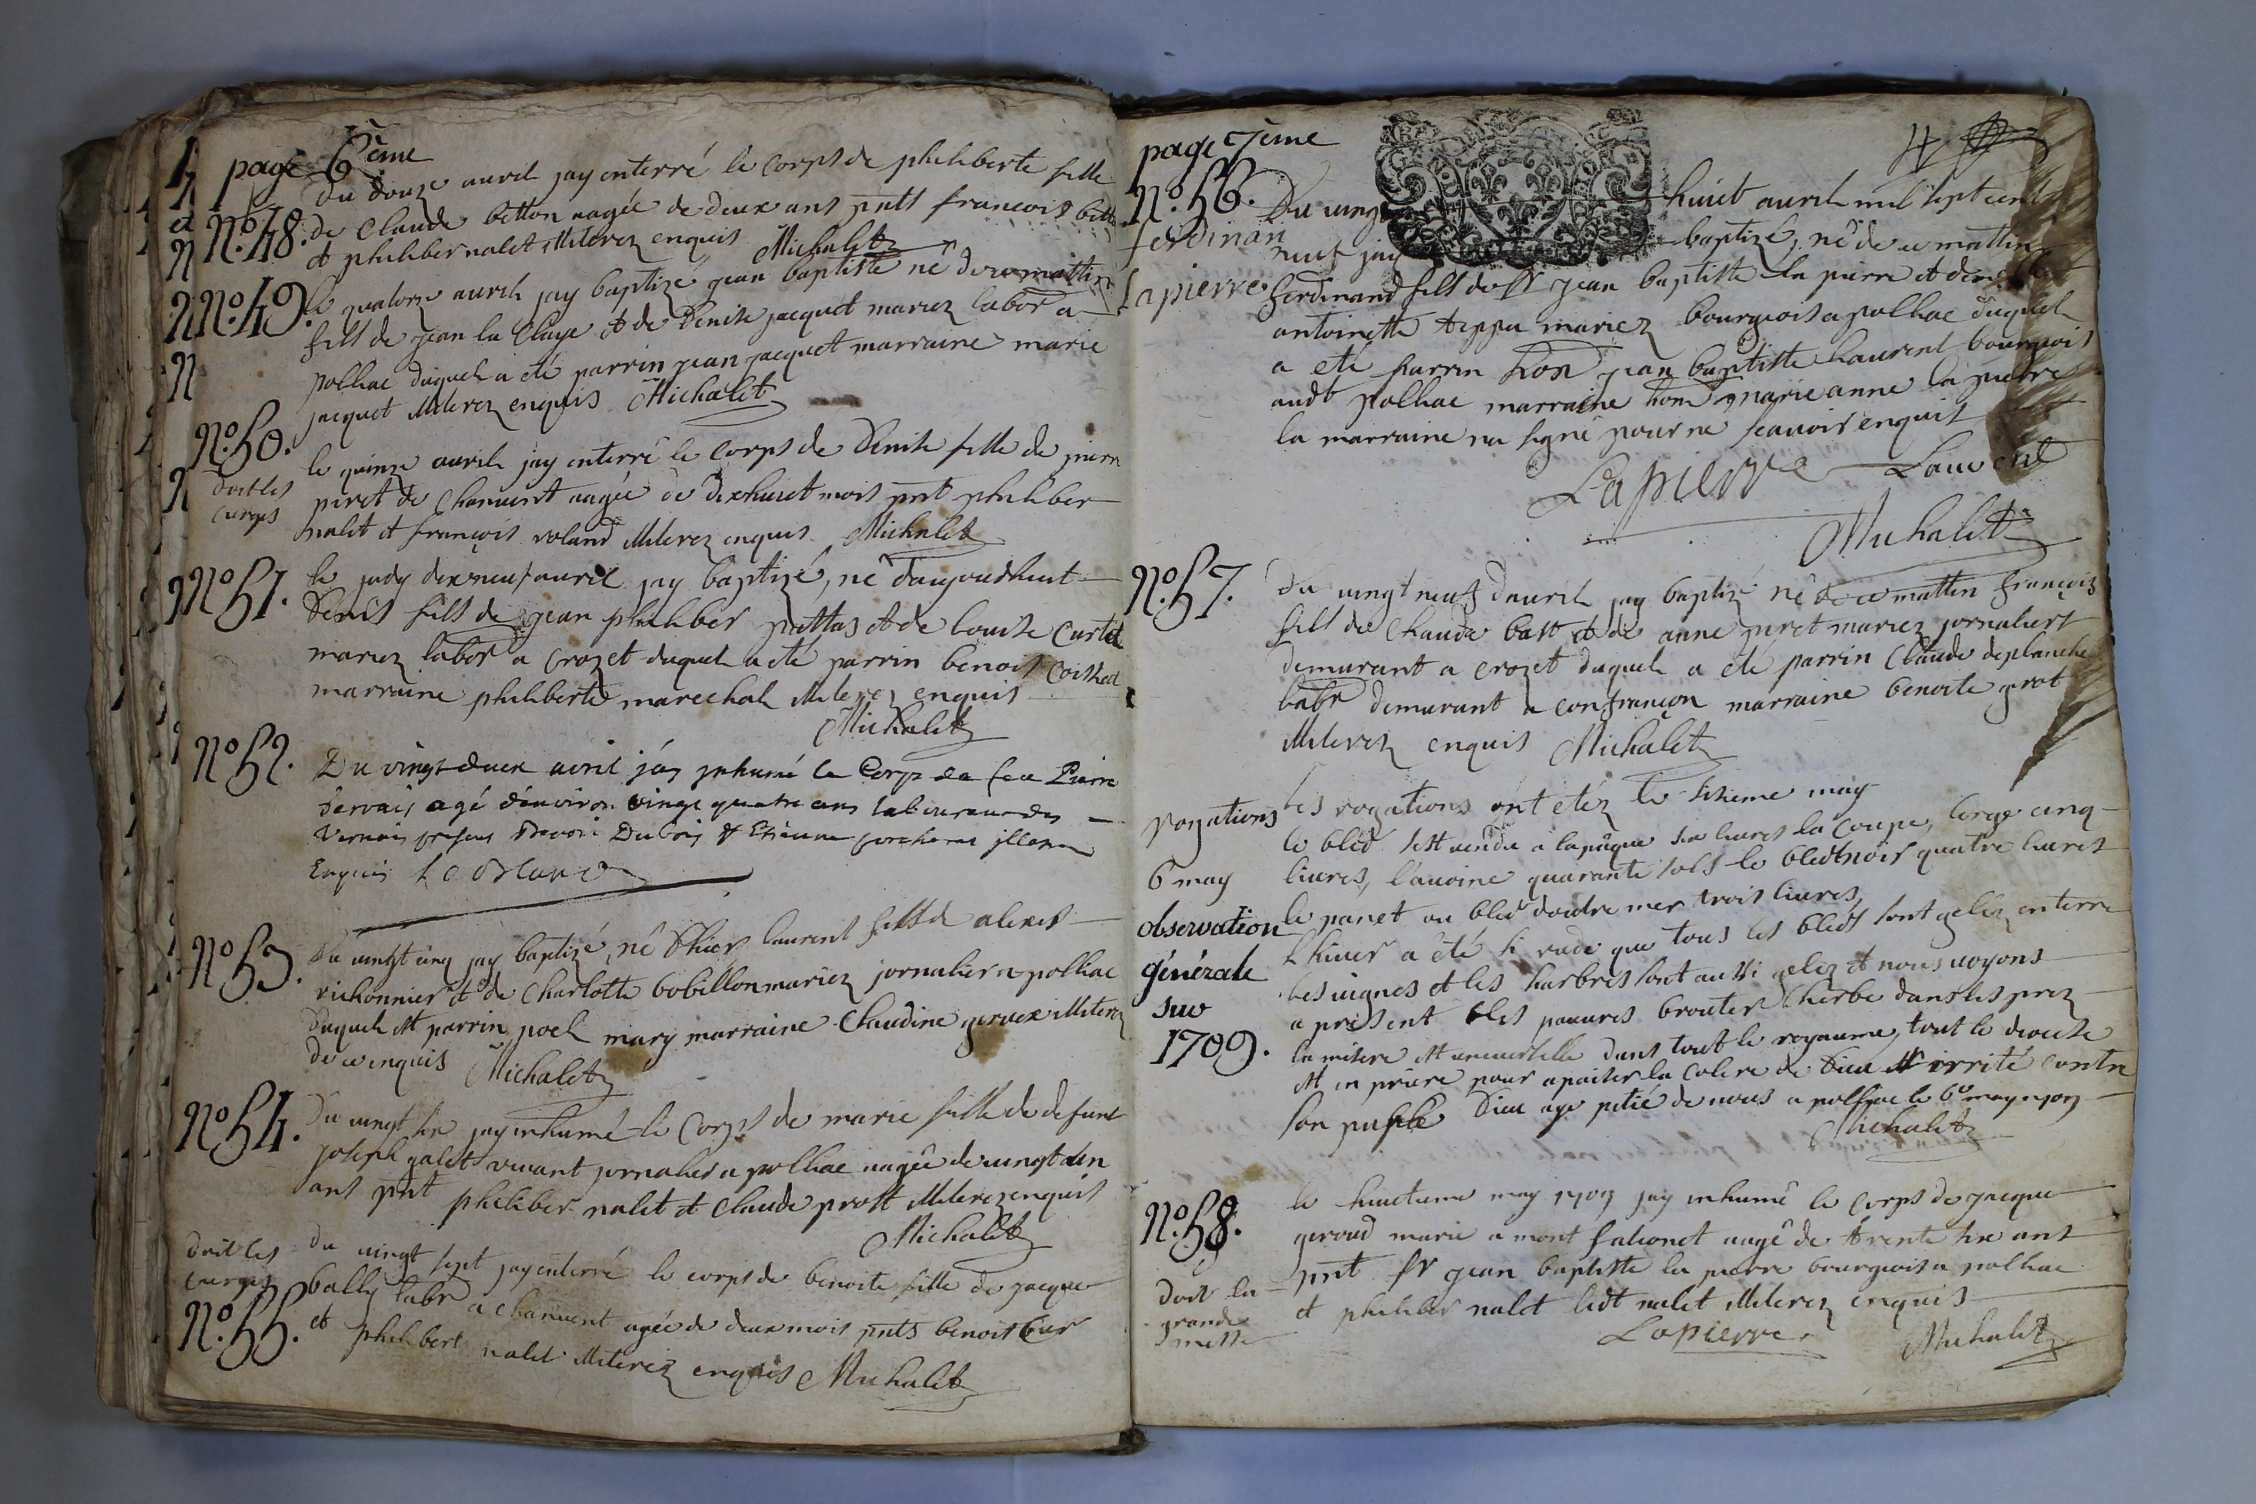 page 6ème
Du douze avril jay enterré le corps de philiberte fille
N.º 48. de Claude betton aagée de deux ans pnts francois bett
et philiber nalet illiterez enquis Michalet
N.º 49. le quatorze avril jay baptizé jean baptiste né de ce mattin
fils de jean la Claye et de Denise jacquet mariez labor a
polliac duquel a été parrin jean jacquet marraine marie
jacquet illiterez enquis Michalet
N.º 50. le quinze avril jay enterré le corps de Denise fille de pierre
doit les cierges
piret de Chanvent aagée de dixhuict mois pnt philiber
nalet et françois voland illiterez enquis Michalet
N.º 51. le judy dixneuf avril jay baptizé, né daujourdhuit
Denis fils de jean philiber puttas et de louise Curtil
mariez labor a crozet duquel a été parrin benoist
marraine philiberte marechal illiterez enquis
Michalet
N.º 52. Du vingt deux avril jáy jnhumé le Corps de feu Pierre
servais agé denviron vingt quatre ans laboureur des
Vernais presens Benoit Dubois & Etienne
Enquis Le Blanc
N.º 53. Du vingt cinq jay baptizé, né Dhier laurent fils de alexis
richonnier et de Charlotte bobillon mariez jornalier a polliac
duquel est parrin poel mary marraine Claudine gervex illiterez
de ce enquis Michalet
N.º 54. Du vingt six jay inhumé le Corps de marie fille de defunt
joseph galet vivant jornalier a polliac aagée de vingt un
ans pnt philiber nalet et Claude prost illiterez enquis
Michalet
doit les cierges
du vingt sept jay enterré le corps de benoite fille de jacque
bally labr a chanvent agée de deux mois pnts benoist
N.º 55. et philibert nalet illiterez enquis Michalet
page 7ème
N.º 56. Du ving huict avril mil sept cent
ferdinan
lapierre.
neuf jay baptizé, né de ce mattin
ferdinand fils de sr jean baptiste la pierre et de
antoinette teppa mariez bourgeois a polliac duquel
a eté parrin hon jean baptiste laurent bourgeois
audt polliac marraine hon marie anne la pierre
la marraine na signé pour ne scavoir enquis
Lapierre Laurent
Michalet
N.º 57. du vingt neuf davril jay baptizé né de ce mattin françois
fils de Claude bast et de anne piret mariez jornaliers
demurant a crozet duquel a eté parrin Claude deplanche
labr demurant a confrançon marraine benoite
illiterez enquis Michalet
rogations
6 may
les rogations ont etéz le sixieme may
le bléd sest vendu a la pâque six livres la coupe, lorge cinq
livres, l'avoine quarante sols le bled noir quatre livres
le panet ou bléd doutre mer trois livres,
observation
générale
sur
1709.
Lhiver a été si rude que tous les bleds sont geléz en terre
les vignes et les harbres sont aussi gelez et nous voyons
a present les pauvres brouter lherbe dans les prez
la misere est universelle dans tout le royaume, tout le diocese
est en priere pour apaiser la colere de Dieu irrité contre
son puple Dieu aye pitié de nous a polliac le 6e may 1709
Michalet
N.º 58.
doit la
grande
messe
le huictieme may 1709 jay inhumé le corps de jacque
geroud marié a mont falconet aagé de trente six ans
pnt sr jean baptiste la pierre bourgeois a polliac
et philiber nalet ledt nalet illiterez enquis
Lapierre. Michalet